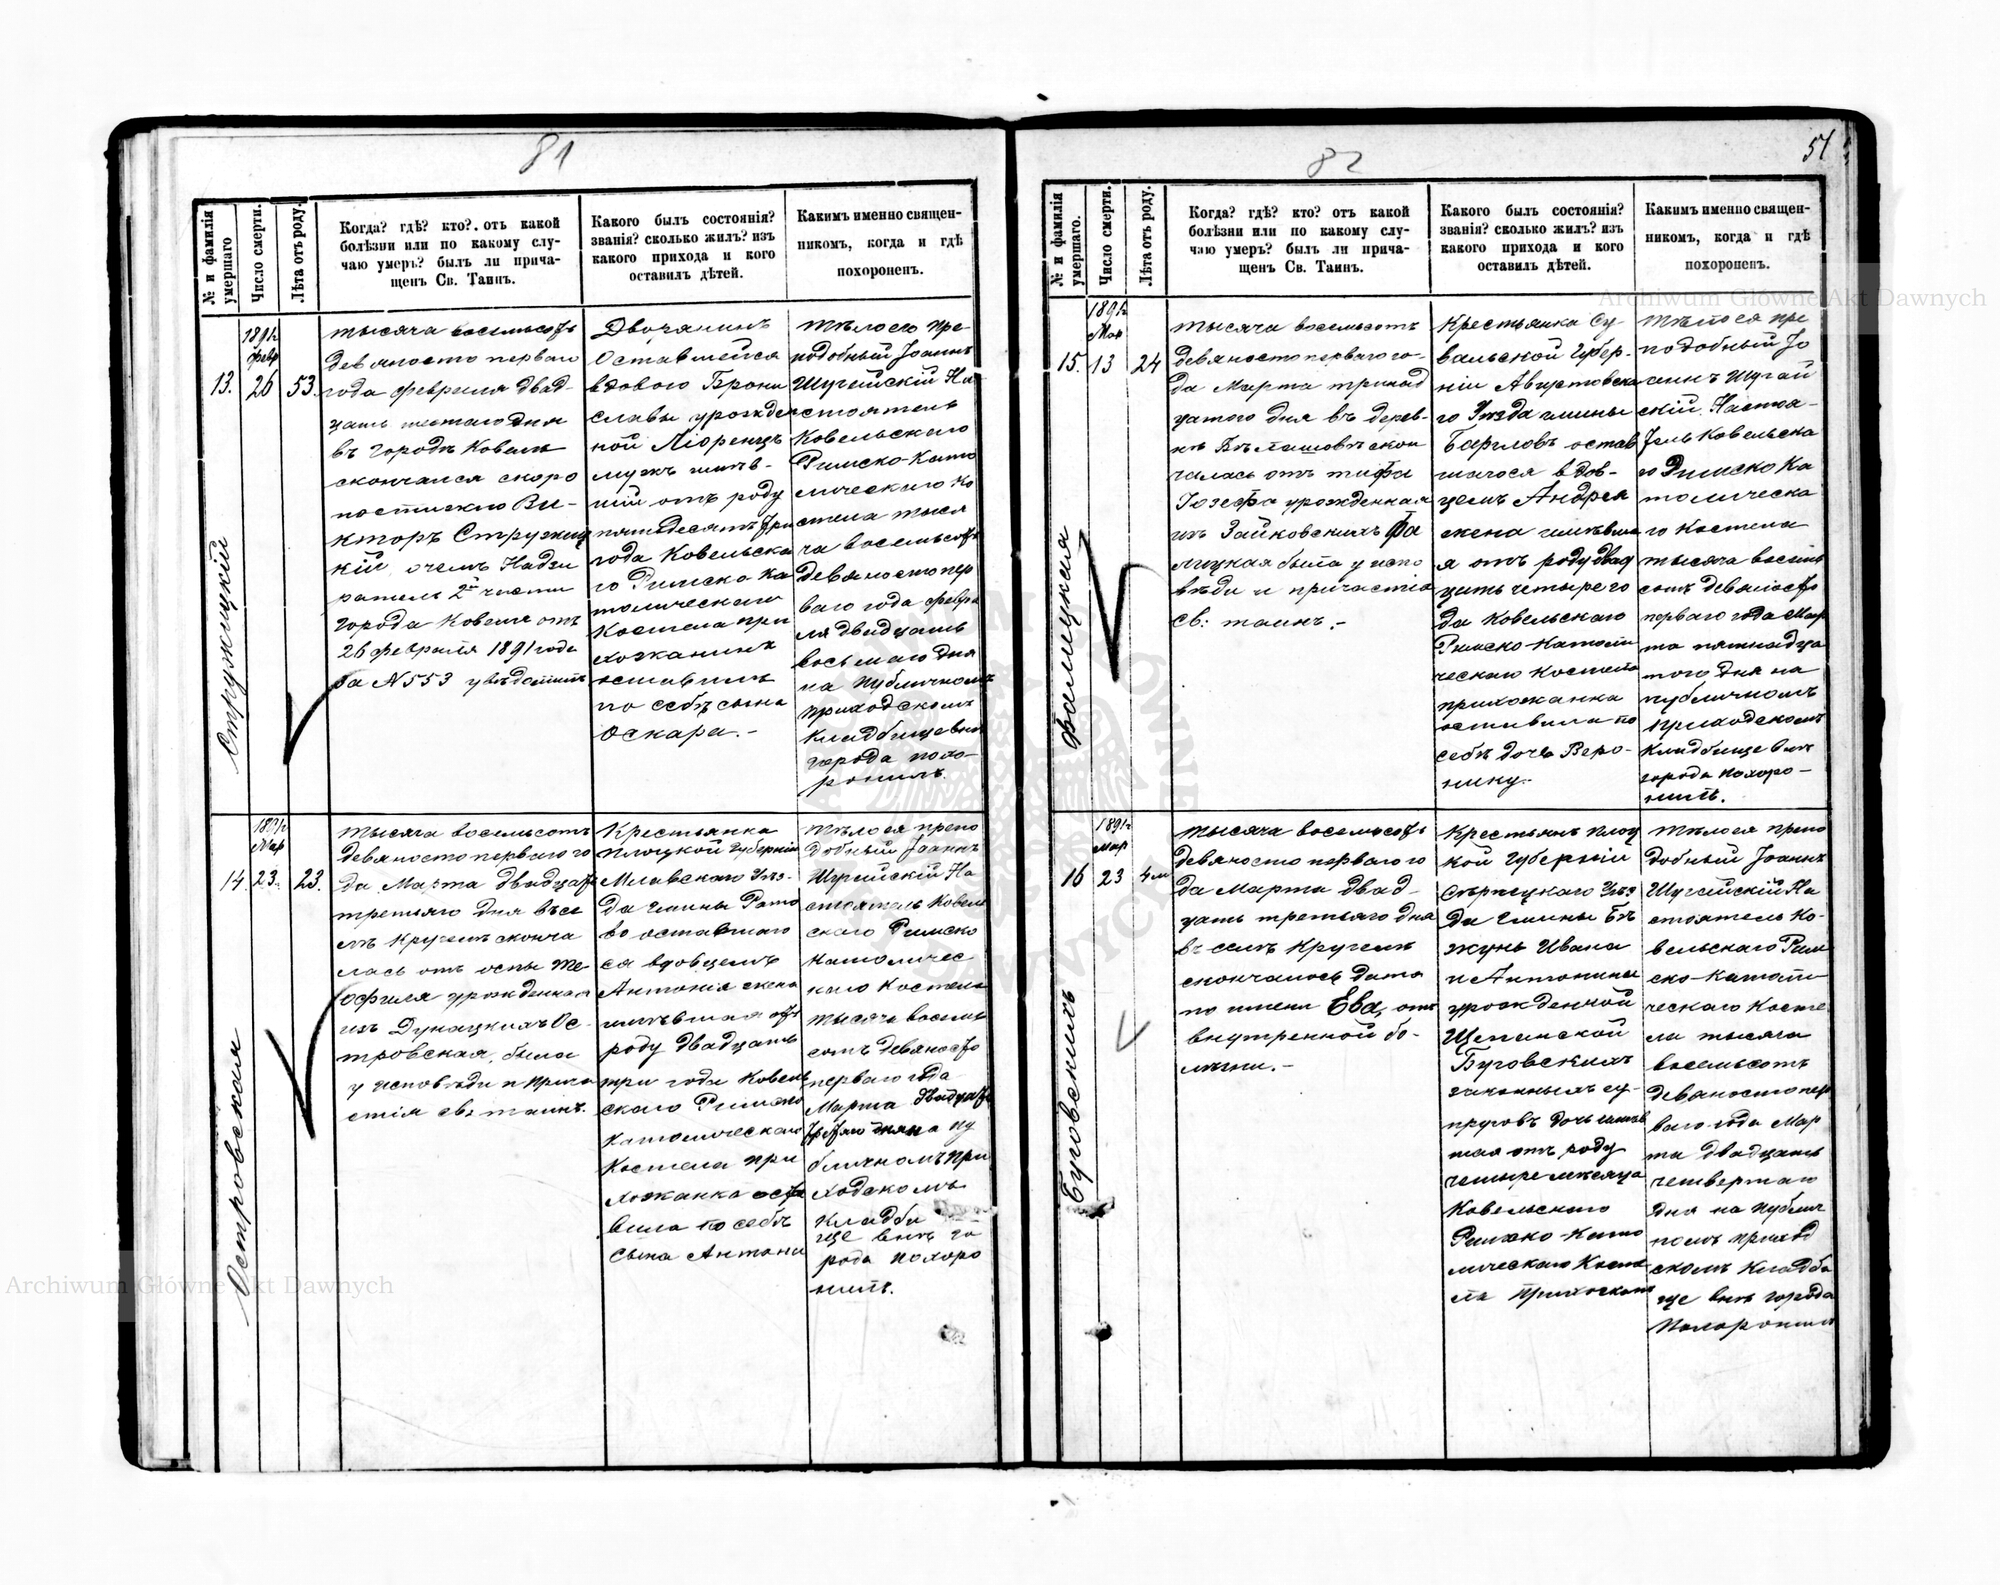 81
№ и фамилія умершаго
Число смерти.
Лѣта отъ роду.
Когда? гдѣ? кто? отъ какой
болѣзни или по какому слу-
чаю умеръ? былъ ли прича-
щенъ Св. Таинъ.
Какого былъ состоянія?
званія? сколько жилъ? изъ
какого прихода и кого
оставилъ дѣтей.
Какимъ именно священ-
никомъ, когда и гдѣ
похороненъ.
13.
Стружицкій
1891 г
Февр
26
53.
тысяча восемьсотъ
девяносто перваго
года февраля двад-
цать шестаго дня
въ городѣ Ковелѣ
скончался скоро
постижно Ви-
кторъ Стружиц
кій, о чемъ Надзи
ратель 2й части
города Ковеля отъ
26 февраля 1891 года
за N 553 увѣдомилъ
Дворянинъ
Оставшейся
вдовою Брони
славы урожден
ной Піоренцъ
мужъ имѣв-
шій отъ роду
пятьдесятъ три
года Ковельска
го Римско-ка
толическаго
Костела при
хожанинъ
оставилъ
по себѣ сына
Оскара.-
Тѣло его пре
подобный Іоаннъ
Шугейскій На
стоятель
Ковельскаго
Римско-Като
лическаго Ко
стела тыся
ча восемьсотъ
девяносто пер
ваго года февра
ля двадцать
восьмаго дня
на публичномъ
приходскомъ
кладбище внѣ
города похо-
ронилъ.
14.
Островская
1891 г
Мар
23.
23.
тысяча восемьсотъ
девяносто перваго го
да Марта двадцать
третьяго дня въ се
лѣ Кругелъ сконча
лась отъ оспы Те
офиля урожденная
изъ Дунацкихъ Ос-
тровская, была
у исповѣди и прича
стія св: таинъ.
Крестьянка
Плоцкой Губерніи
Млавскаго Уѣз-
да гмины Рато
во оставшаго
ся вдовцемъ
Антонія жена
имѣвшая отъ
роду двадцать
три года Ковель
скаго Римско
Католическаго
Костела при
хожанка оста
вила по себѣ
сына Антони
Тѣло ея препо
добный Іоаннъ
Шугейскій На
стоятель Ковель
скаго Римско
Католичес
каго Костела
тысяча восемь
сотъ девяносто
перваго года
Марта двадцать
пятаго дня на пу
бличномъ при
ходскомъ
кладби
ще внѣ го-
рода похоро
нилъ.
82
51
№ и фамилія умершаго.
Число смерти.
Лѣта отъ роду.
Когда? гдѣ? кто? отъ какой
болѣзни или по какому слу-
чаю умеръ? былъ ли прича-
щенъ Св. Таинъ.
Какого былъ состоянія?
званія? сколько жилъ? изъ
какого прихода и кого
оставилъ дѣтей.
Какимъ именно священ-
никомъ, когда и гдѣ
похороненъ.
15.
Фалицкая
1891 г
Мар
13
24
тысяча восемьсотъ
девяносто перваго го-
да Марта тринад
цатого дня въ дерев-
нѣ Бѣлашовѣ скон
чалась отъ тифа
Іозефа урожденная
изъ Зайковскихъ Фа
лицкая была у испо
вѣди и причастія
св: таинъ.-
Крестьянка Су-
вальской Губер-
ніи Августовска
го Уѣзда гмины
Баргловъ остав
шагося вдов-
цемъ Андрея
жена имѣвша
я отъ роду двад
цать четыре го
да Ковельскаго
Римско-Католи
ческаго Костела
прихожанка
оставила по
себѣ дочь Веро-
нику.-
Тѣло ея пре
подобный Іо
аннъ Шугей
скій Настоя-
тель Ковельска
го Римско Ка
толическа
го Костела
тысяча восемь
сотъ девяносто
перваго года Мар
та пятнадца
того дня на
публичномъ
приходскомъ
кладбище внѣ
города похоро-
нилъ.
16
Буговскихъ
1891 г
Мар
23
4 м
тысяча восемьсотъ
девяносто перваго го
да Марта двад-
цать третьяго дня
въ селѣ Кругелъ
скончалось дитя
по имени Ева, отъ
внутренной бо-
лѣзни.-
Крестьянъ Плоц
кой Губерніи
Сѣрпецкаго Уѣз
да Гмины Бѣ
жунь Ивана
и Антонины
урожденной
Щепанской
Буговскихъ
законныхъ су-
пруговъ дочь имѣв
шая отъ роду
четыре мѣсяца
Ковельскаго
Римско-Като
лическаго Косте
ла прихожан
Тѣло ея препо
добный Іоаннъ
Шугейскій На
стоятель Ко-
вельскаго Рим
ско-Католи
ческаго Косте
ла тысяча
восемьсотъ
девяносто пер
ваго года Мар
та двадцать
четвертаго
дня на публич
номъ приход
скомъ кладби
ще внѣ города
похоронилъ
Archiwum Główne Akt Dawnych
Archiwum Główne Akt Dawnych